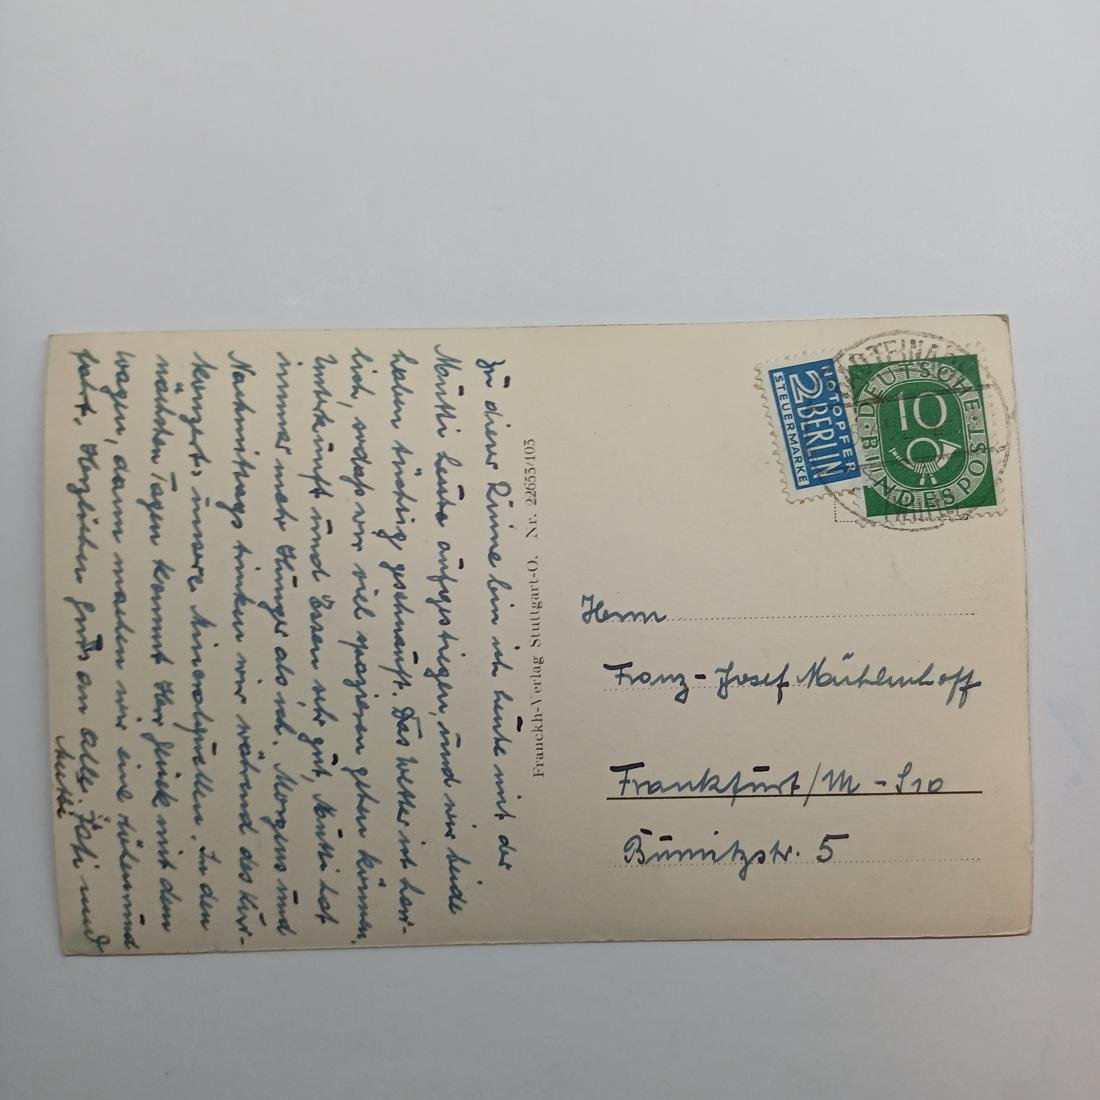 Zu dieser Ruine bin ich heute mit der
Mutti heute aufgestiegen, und wir beide
haben tüchtig geschnauft. Das Wetter ist herr-
lich, sodass wir viel spazieren gehen können.
Unterkunft und Essen sehr gut, Mutti hat
immer mehr Hunger als ich. Morgens und
Nachmittags trinken wir während des Kur-
konzerts unsere Mineralquellen. In den
nächsten Tagen kommt Herr Glück mit dem
Wagen, dann machen wir eine
fahrt. Herzlichen Gruss an alle. Papi und
Mutti
Franckh-Verlag Stuttgart-O. Nr. 22653/103
NOTOPFER
2 BERLIN
STEUERMARKE
DEUTSCHE BUNDESPOST
10
Herrn
Franz-Josef Mühlenhoff
Frankfurt/M-S10
5